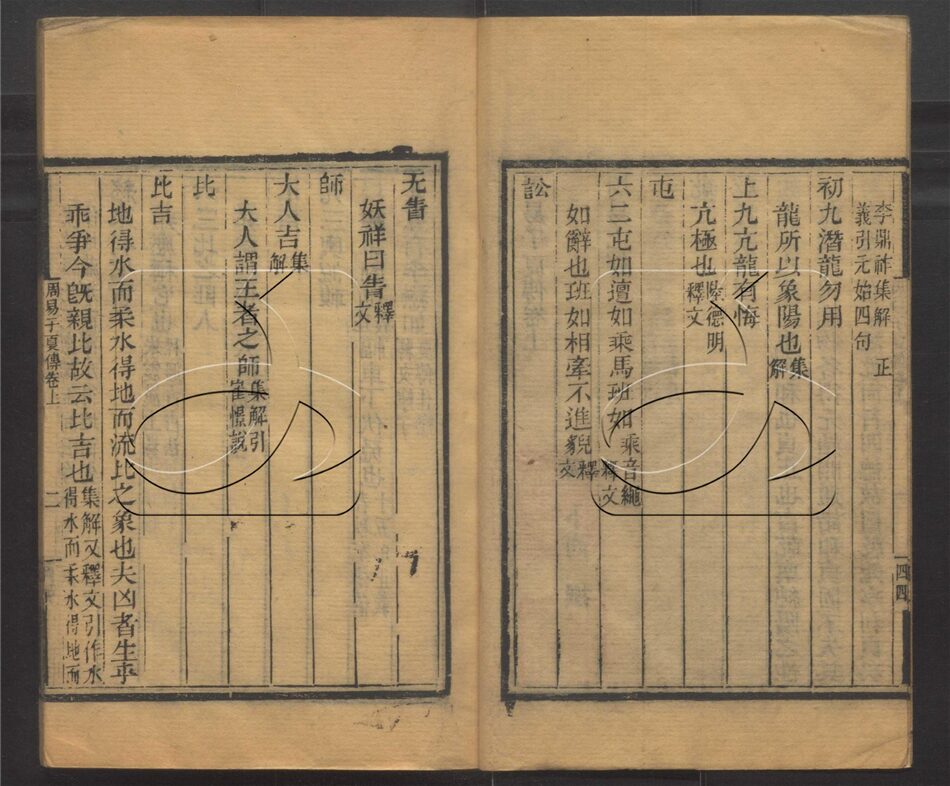 李鼎祚集解 正
義引元始四句
初九潛龍勿用
龍所以象陽也集解
上九亢龍有悔
亢極也陸德明釋文
屯
六二屯如邅如乘馬班如乘音繩釋文
如辭也班如相牽不進貌釋文
訟
无眚
妖祥曰眚釋文
師
大人吉集解
大人謂王者之師集解引崔憬說
比
比吉
地得水而柔水得地而流比之象也夫凶者生乎
乖爭今旣親比故云比吉也集解又釋文引作水得水而柔水得地而
周易子夏傳卷上 二
四四